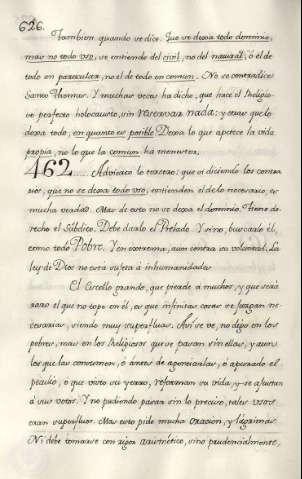 626.
Tambien quando se dice. Que se dexa todo dominio,
mas no todo uso, se entiende del civil, no del natural, ó el de
todo en particular, no el de todo en comun. No se contradice
Santo Thomas. Y muchas veces ha dicho, que hace el Religio-
so perfecto holocausto, sin reservar nada; y otras que lo
dexa todo, en quanto es posible Dexa lo que apetece la vida
propia, no lo que la comun ha menester.
462 Advierto lo tercero: que si diciendo los contra
rios, que no se dexa todo uso, entienden el de lo necesario, es
mucha verdad. Mas de esto no se dexa el dominio. Tiene de-
recho el Subdito. Debe darlo el Prelado. Y sino, buscarlo él,
como todo Pobre. Y en extrema, aun contra su voluntad. La
ley de Dios no está sujeta á inhumanidades
El Escollo grande, que pierde á muchos, y que será
raro el que no tope en él, es que infinitas cosas se juzgan ne-
cesarias, siendo muy superfluas. Así se ve, no digo en los
pobres, mas en los Religiosos que se pasan sin ellas, y aun
los que las consumen, ó ántes de agenciarlas, ó apurado el
peculio, ó que visto su yerro, reforman su vida, y se ajustan
á sus votos. Y no pudiendo pasar sin lo preciso, tales usos
eran superfluos. Mas esto pide mucha oracion, y lágrimas.
Ni debe tomarse con rigor aritmético, sino prudencialmente,